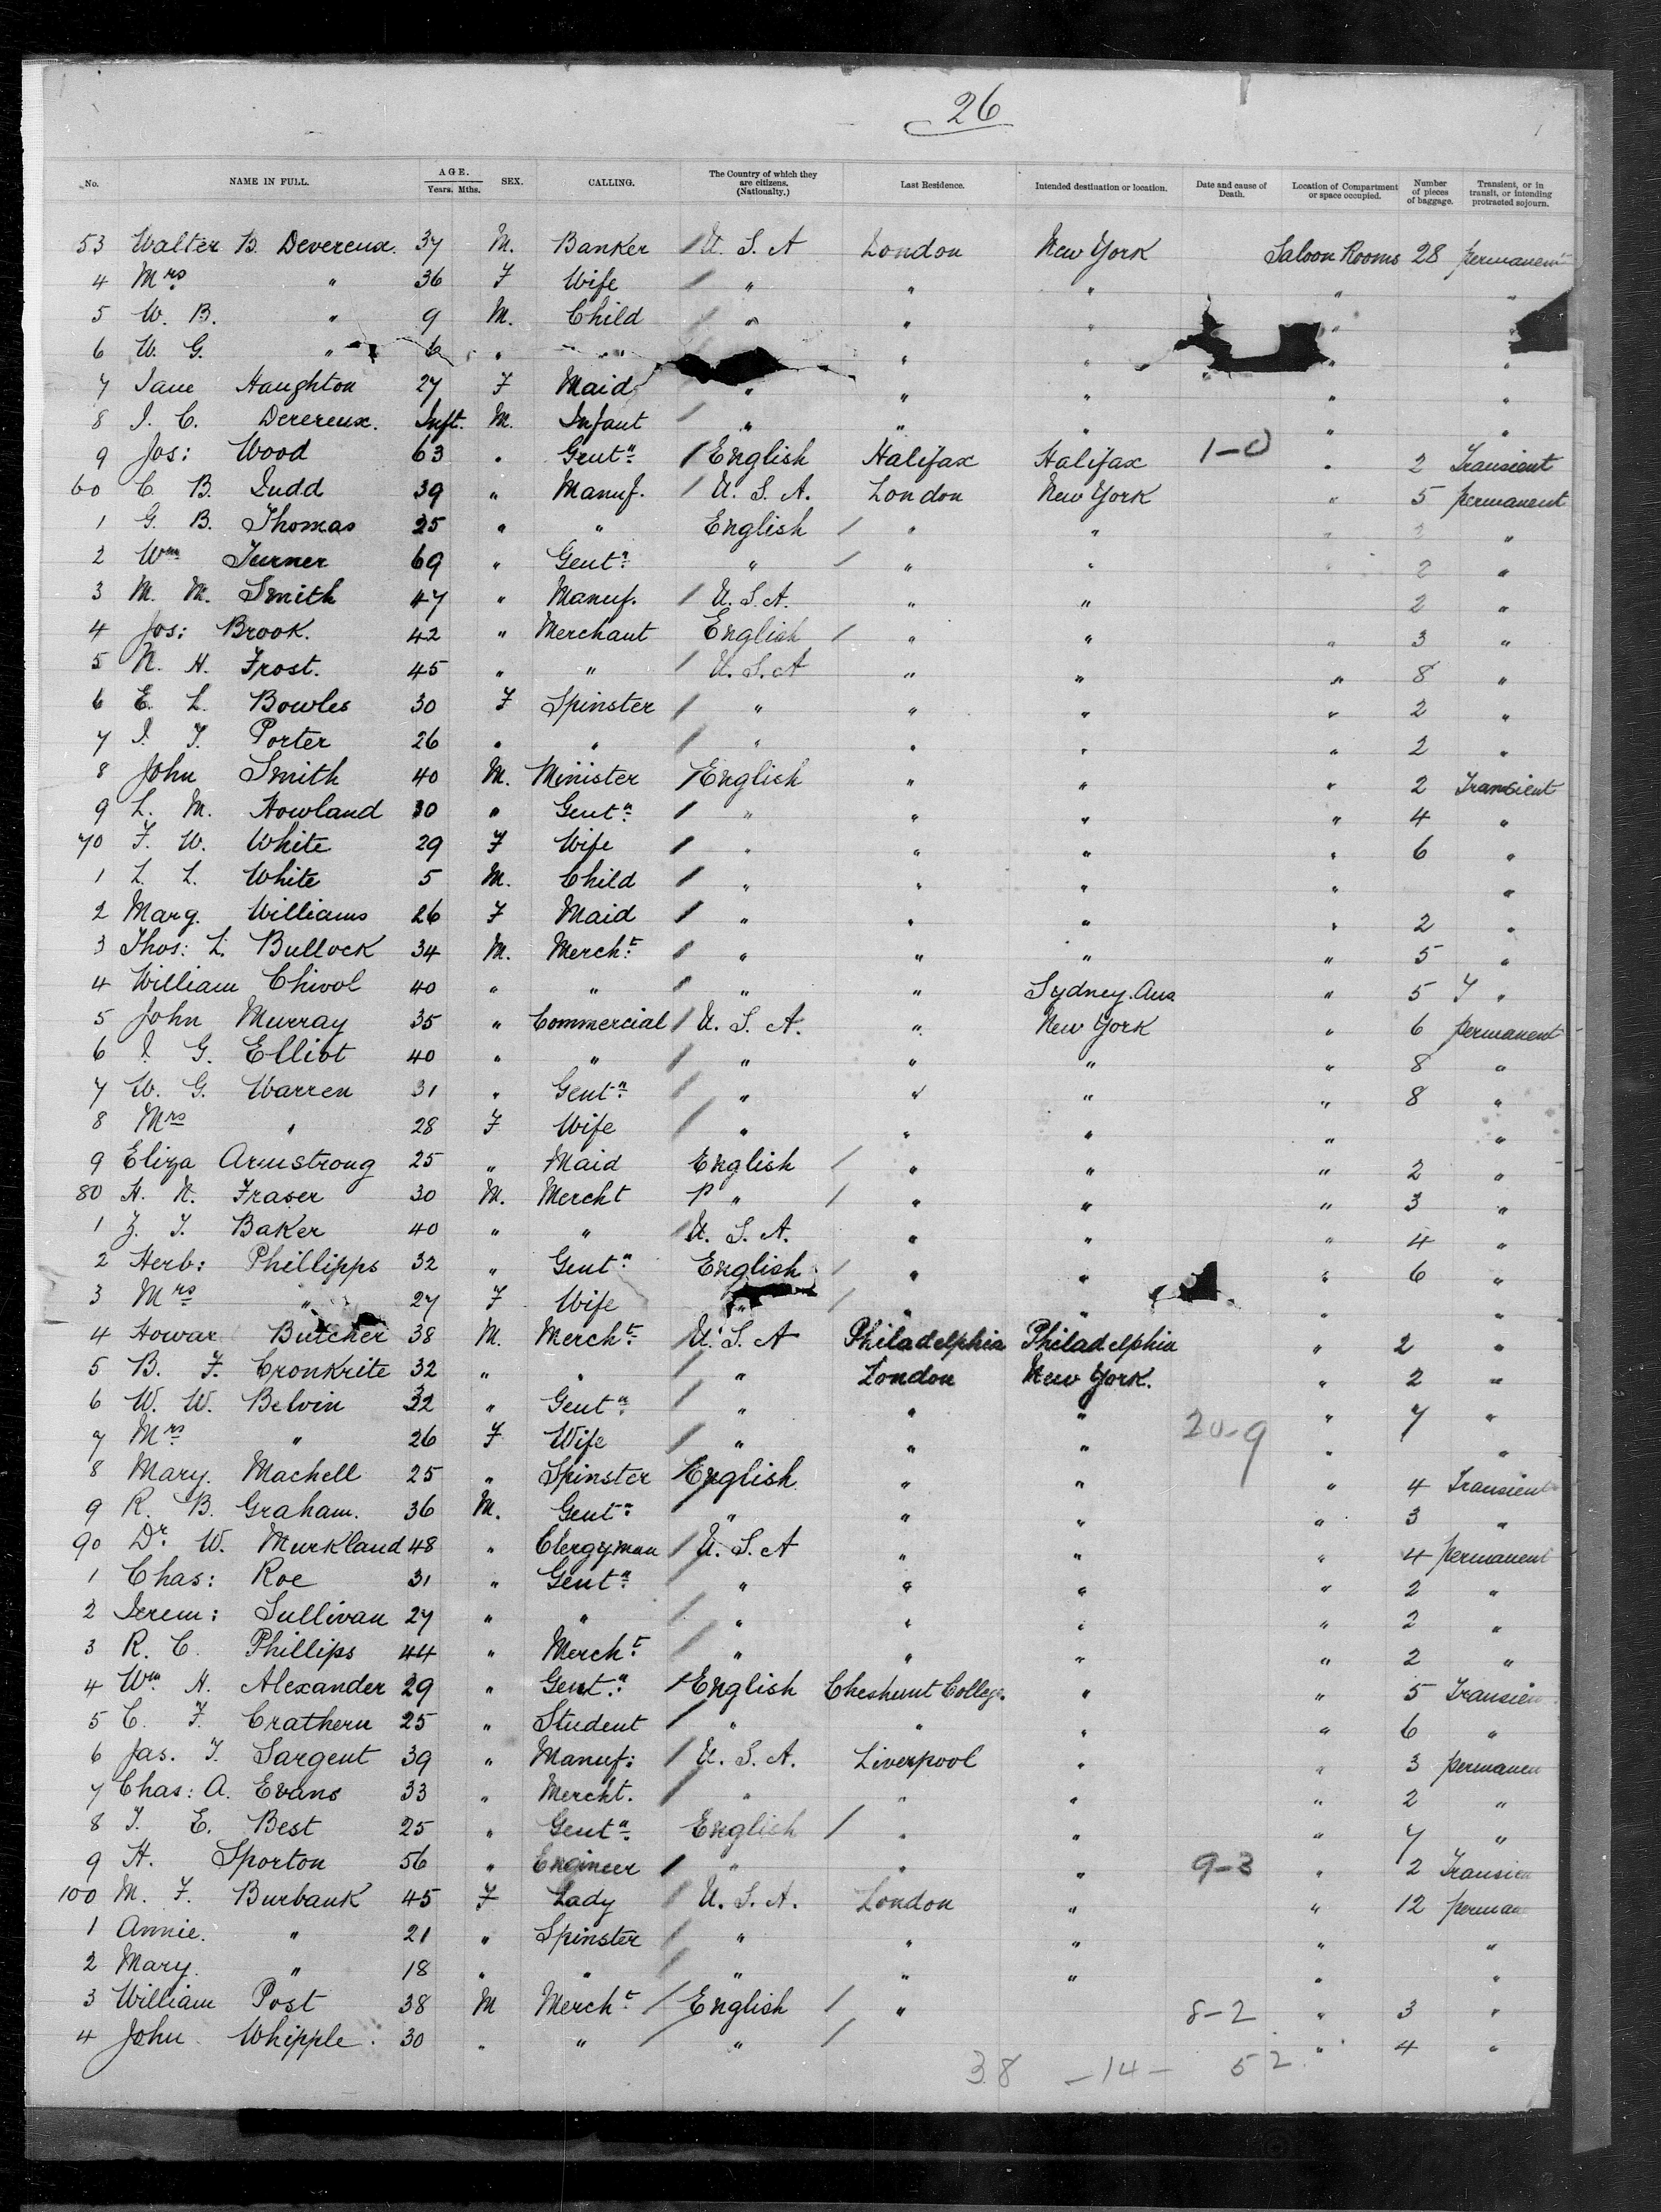 26
No. NAME IN FULL. AGE. Years. Mths. SEX. CALLING. The Country of which they are citizens. (Nationalty.) Last Residence. Intended destination or location. Date and cause of Death. Location of Compartment or space occupied. Number of pieces of baggage. Transient, or in transit, or intending protracted sojourn.
53 Walter B. Devereux. 37 M. Banker U. S. A London New York Saloon Rooms 28 permanent
4 Mrs " 36 F Wife " " " " "
5 W. B. " 9 M. Child " " " "
6 W. G. " 6 " " " " " "
7 Jane Haughton 27 F Maid " " " " "
8 J. C. Devereux. Inft. M. Infant " " " " "
9 Jos: Wood 63 " Gentn English Halifax Halifax 1-0 " 2 Transient
60 C. B. Judd 39 " Manuf. U. S. A. London New York " 5 permanent
1 G. B. Thomas 25 " " English " " " 3 "
2 Wm Turner 69 " Gentn " " " " 2 "
3 M. M. Smith 47 " Manuf. U. S. A. " " 2 "
4 Jos: Brook. 42 " Merchant English " " " 3 "
5 N. H. Frost. 45 " " U. S. A " " " 8 "
6 E. L. Bowles 30 F Spinster " " " " 2 "
7 J. T. Porter 26 " " " " " " 2 "
8 John Smith 40 M. Minister English " " " 2 Transient
9 L. M. Howland 30 " Gentn " " " " 4 "
70 F. W. White 29 F Wife " " " " 6 "
1 L. L. White 5 M. Child " " " " "
2 Marg. Williams 26 F Maid " " " " 2 "
3 Thos: L. Bullock 34 M. Mercht " " " " 5 "
4 William Chivol 40 " " " " Sydney. Aus " 5 T "
5 John Murray 35 " Commercial U. S. A. " New York " 6 permanent
6 J. G. Elliot 40 " " " " " " 8 "
7 W. G. Warren 31 " Gentn " " " " 8 "
8 Mrs " 28 F Wife " " " " "
9 Eliza Armstrong 25 " Maid English " " " 2 "
80 H. N. Fraser 30 M. Mercht " " " " 3 "
1 Z. T. Baker 40 " " U. S. A. " " " 4 "
2 Herb: Phillipps 32 " Gentn English " " " 6 "
3 Mrs " 27 F Wife " " " " "
4 Howar Butcher 38 M. Mercht U. S. A Philadelphia Philadelphia " 2 "
5 B. F. Cronkrite 32 " " " London New York. " 2 "
6 W. W. Belvin 32 " Gentn " " " " 7 "
7 Mrs " 26 F Wife " " " 20-9 " "
8 Mary. Machell 25 " Spinster English " " " 4 Transient
9 R. B. Graham. 36 M. Gentn " " " " 3 "
90 Dr. W. Murkland 48 " Clergyman U. S. A " " " 4 permanent
1 Chas: Roe 31 " Gentn " " " " 2 "
2 Jerem: Sullivan 27 " " " " " " 2 "
3 R. C. Phillips 44 " Mercht " " " " 2 "
4 Wm. H. Alexander 29 " Gentn English Cheshunt College. " " 5 Transien
5 C. F. Crathern 25 " Student " " " " 6 "
6 Jas. T. Sargent 39 " Manuf: U. S. A. Liverpool " " 3 permanen
7 Chas: A. Evans 33 " Mercht. " " " " 2 "
8 T. E. Best 25 " Gentn English " " " 7 "
9 H. Sporton 56 " Engineer " " " 9-3 " 2 Transien
100 M. F. Burbank 45 F Lady U. S. A. London " " 12 perman
1 Annie. " 21 " Spinster " " " " "
2 Mary. " 18 " " " " " " "
3 William Post 38 M Mercht English " 8-2 " 3 "
4 John Whipple. 30 " " " " 4 "
38 -14- 52.